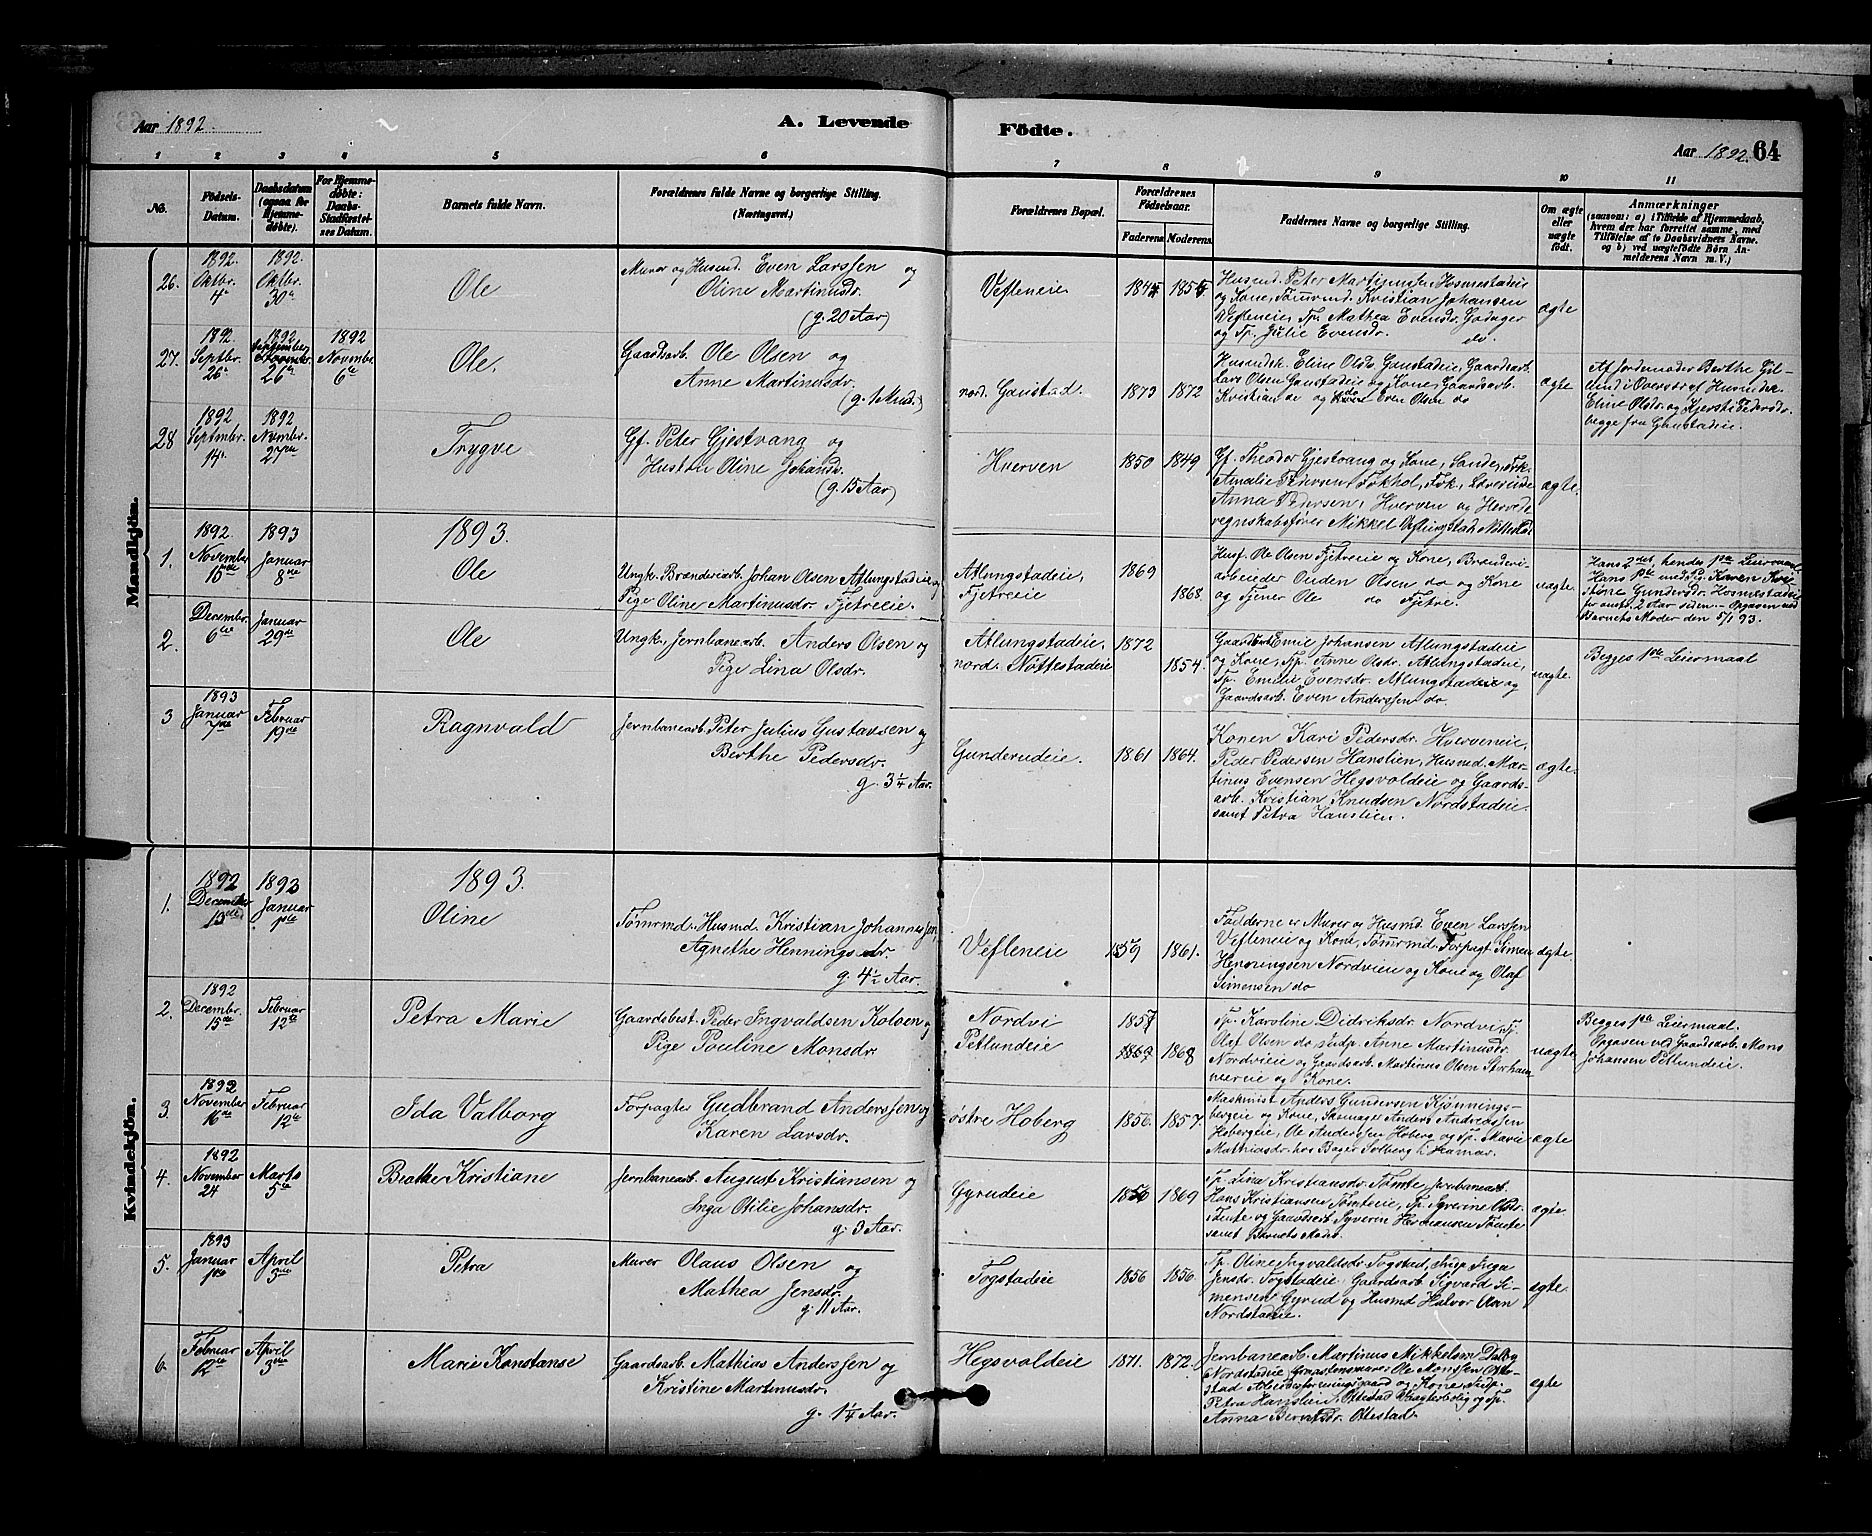 Aar 1892.
A. Levende
Födte.
Aar 1892. 64
1 2 3 4 5 6 7 8 9 10 11
No.
Födsels-
Datum.
Daabsdatum
(ogsaa for
Hjemme-
døbte).
For Hjemme-
døbte:
Daabs-
Stadfæstel-
ses Datum.
Barnets fulde Navn.
Forældrenes fulde Navne og borgerlige Stilling.
(Næringsvei.)
Forældrenes Bopæl.
Forældrenes
Födselsaar.
Faderens. Moderens.
Faddernes Navne og borgerlige Stilling.
Om ægte
eller
uægte
födt.
Anmærkninger
(saasom: a) i Tilfælde af Hjemmedaab,
hvem der har forrettet samme, med
Tilföielse af to Daabsvidners Navne.
og b) ved uægtefödte Börn An-
melderens Navn m. V.)
Mandkjön.
26.
1892.
Oktbr.
4de
1892.
Oktbr.
30te
Ole
Murer og Husmd. Even Larssen og
Oline Martinusdr.
(g. 20 Aar)
Vefleneie
1847 1854
Husmd. Peter Martinusen Hosmestadeie
og Kone, Tømrmd. Kristian Johansen
Vefleneie, Tp. Mathea Evensdr.
og Tp. Julie Evensdr. do.
ægte
27.
1892.
Septbr.
26de
1892
September
26de
1892
Novembr.
6te
Ole.
Gaardsarb. Ole Olsen og
Anne Martinusdr.
(g. 1 Mnd.)
nord. Gaustad.
1873 1872
Husmdsk. Eline Olsdr. Gaustadeie Gaardsarb.
Lars Olsen Gaustadeie og Kone, Gaardsarb.
Kristian do og Even Olsen do
ægte
Af Jordemoder Berthe Gil-
lund i Overvær af Husmdsk.
Eline Olsdr. og Kjersti Pedersdr.
begge fra Gaustadeie.
28
1892
Septmbr.
14de
1892
Novmbr.
27de
Trygve
Gf. Peter Gjestvang og
Hustru Oline Johansdr.
(g. 15 Aar)
Hverven
1850 1849
Gf. Theodor Gjestvang og Kone, Sande, Frk.
Amalie Pedersen, Fokhol, Frk. Lærerinde
Anna Pedersen, Hverven og Herreds-
regnskabsfører Mikkel
ægte.
1893.
1.
1892.
November
15de
1893
Januar
8de
Ole
Ungk. Brænderiarb. Johan Olsen Atlungstadeie og
Pige Oline Martinusdr. Fjetreeie.
Atlungstadeie,
Fjetreeie
1869
1868.
Husf. Ole Olsen Fjetreeie og Kone, Brænderi-
arbeider Ouden Olsen do og Kone
og Tjener Ole do Fjetre.
uægte.
Hans 2det, hendes 1ste Leiermaal.
Hans 1ste med Pg. Karen Kri-
stine Gundersdr. Hosmestadeie
for omtr. 2 Aar siden. Opgaven ved
Barnets Moder den 5/1 93.
2.
Decembr.
6te
Januar
29de
Ole
Ungk. Jernbanearb. Anders Olsen og
Pige Lina Olsdr.
Atlungstadeie.
nord. Nøttestadeie
1872
1854.
Gaardsarb. Emil Johansen Atlungstadeie
og Kone, Tp. Anne Olsdr. Atlungstadeie,
Tp. Emilie Evensdr. Atlungstadeie og
Gaardsarb. Even Anderssen do.
uægte.
Begges 1ste Leiermaal
3
1893
Januar
7de
Februar
19de
Ragnvald
Jernbanearb. Peter Julius Gustavsen og
Berthe Pedersdr.
g. 3 1/4 Aar.
Gunderudeie.
1861 1864.
Konen Kari Pedersdr. Hverveneie,
Peder Pedersen Hanslien, Husmd. Mar-
tinus Evensen Hegsvoldeie og Gaards-
arb. Kristian Knudsen Nordstadeie
samt Petra Hanslien.
ægte.
Kvindekjön.
1893.
1.
1892
December
13de
1893
Januar
1ste
Oline
Tømrmd. Husmd. Kristian Johannesen,
Agnethe Henningsdr.
g. 4 1/2 Aar.
Vefleneie
1859 1861.
Fadderne er Murer og Husmd. Even Larssen
Vefleneie og Kone, Tømrmd. Forpagt. Simen
Henningsen Nordvieie og Kone og Olaf
Simensen do
ægte.
2.
1892
Decembr.
15de
Februar
12te
Petra Marie
Gaardsbest. Peder Ingvaldsen Kolsen og
Pige Pouline Monsdr.
Nordvi
Petlundeie
1857
1869 1868
Tp. Karoline Didriksdr. Nordvi, Tj.
Olaf Olsen do Indp. Anne Martinusdr.
Nordvieie og Gaardsarb. Martinus Olsen Storham-
mereie og Kone.
uægte
Begges 1ste Leiermaal.
Opgaven ved Gaardsarb. Mons
Johansen Petlundeie.
3.
1892
November
16de
Februar
12te
Ida Valborg
Forpagter Gudbrand Anderssen og
Karen Larsdr.
østre Hoberg
1856. 1857.
Maskinist Anders Gundersen Kjønnings-
bergeie og Kone, Skomager Anders Andreassen
Hobergeie, Ole Anderssen Hoberg og Tp. Marie
Mathiasdr. hos Bager Solberg i Hamar.
ægte
4.
1892
November
24
Marts
5te
Beathe Kristiane
Jernbanearb. August Kristiansen og
Inga Otilie Johansdr.
g. 3 Aar.
Gyrudeie
1856 1869
Tp. Lina Kristiansdr. Tomte, Jernbanearb.
Hans Kristiansen Tomteeie, Tp. Syverine Olsdr.
Tomte og Gaardsarb. Syverin Hermansen Tomte
samt Barnets Moder.
ægte
5.
1893
Januar
1ste
April
3die
Petra
Murer Olaus Olsen og
Mathea Jensdr.
g. 11 Aar.
Togstadeie
1856 1856.
Tp. Oline Ingvaldsdr. Togstad, Indp. Inga
Jensdr. Togstadeie Gaardsarb. Sigvard Si-
mensen Gyrud og Husmd Halvor Olsen
Nordstadeie.
ægte.
6.
Februar
12te
April
3die
Marie Konstanse
Gaardsarb. Mathias Anderssen og
Kristine Martinusdr.
g. 1 1/4 Aar.
Hegsvoldeie
1871. 1872.
Jernbanearb. Martinus Mikkelsen Dalby
Nordstadeie, Graastensmurer Ole Monssen Otte-
stad og Kone, Indp.
Petra Hanslien, Ottestad og Tp.
Anna Berntsdr. Ottestad.
ægte